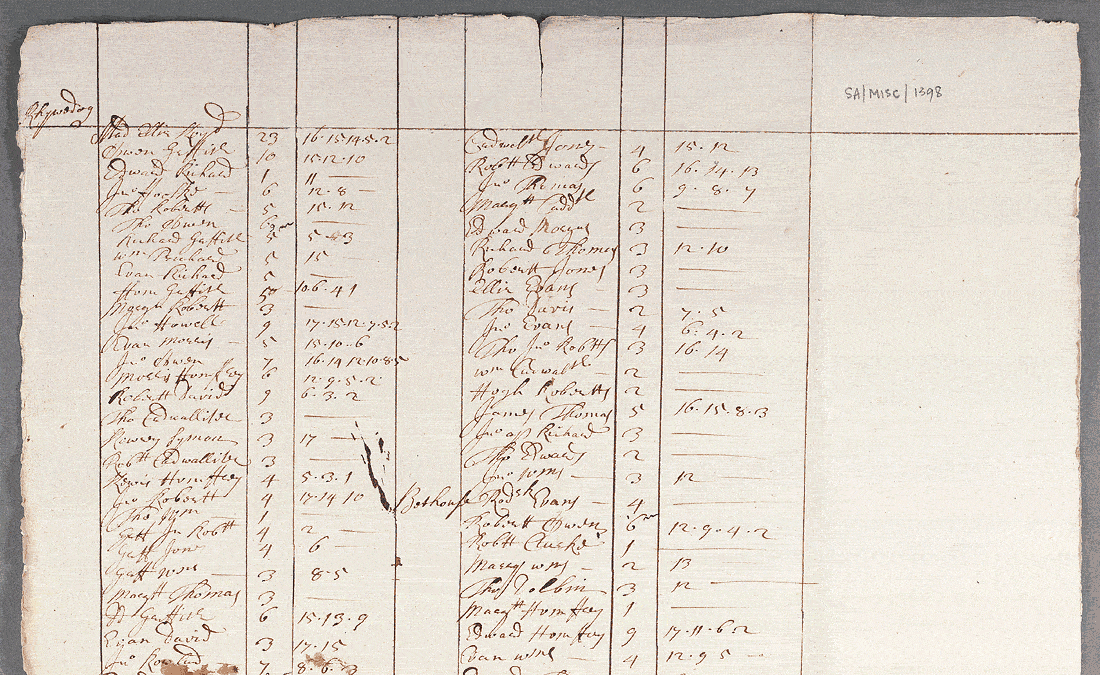 SA/MISC/1398
Rhiwedog
Mad Ellis Lloyd 23 16·15·14·5·2
Owen Griffith 10 15·12·10
Edward Richard 1 11 —
Jno 6 12·8 —
Tho Robertts — 5 15·12
Tho Owen 6 —
Richard Griffith 5 5·4·3
Wm Prichard 5 15 —
Evan Richard 5 —
Hom Griffith 5 10·6·4·1
Margtt Robertt 3 —
Jno Howell 9 17·15·12·7·5·2
Evan Morris — 5 15·10·6
Jno Owen 7 16·14·12·10·8·5
Morris Homffrey 6 12·9·5·2
Robertt David 9 6·3·2
Tho Cadwallider 3 —
Rowry Symon 3 17 —
Robtt Cadwallider 3 —
Lewis Homffrey 4 5·3·1
Jno Robertt 4 17·14·10
Tho 1 —
Gaff Jn Robtt 4 2 —
Gaff Jone 4 6 —
Gaff Wms — 3 8·5
Margtt Thomas 3 —
Griffith 6 15·13·9
Evan David 3 17·15
Jno Rowland 7 8·6·3
Cadwaltr Jones — 4 15·12
Robtt Edwards 6 16·14·13
Jno Thomas 6 9·8·7
Margtt Caddr 2 —
Edward Morgns 3 —
Richard Thomas 3 12·10
Robertt Jones 3 —
Ellis Evans 3 —
Tho Davis — 2 7·5
Jno Evans — 4 6·4·2
Tho Jno Robtts 3 16·14
Wm Cadwaltr — 2 —
Hugh Robertts 2 —
James Thomas 5 16·15·8·3
Jno ap Richard 3 —
Tho Edwards 2 —
Jno Wms — 3 12
Bothouse Rodrk Evans — 4 —
Robertt Owen 6 12·9·4·2
Robtt Clarke 1 —
Margt Wms — 2 13
Tho Tolbin 3 12
Margtt Homffrey 1 —
Edward Homffrey 9 17·11·6·2
Evan Wms — 4 12·9·5 —